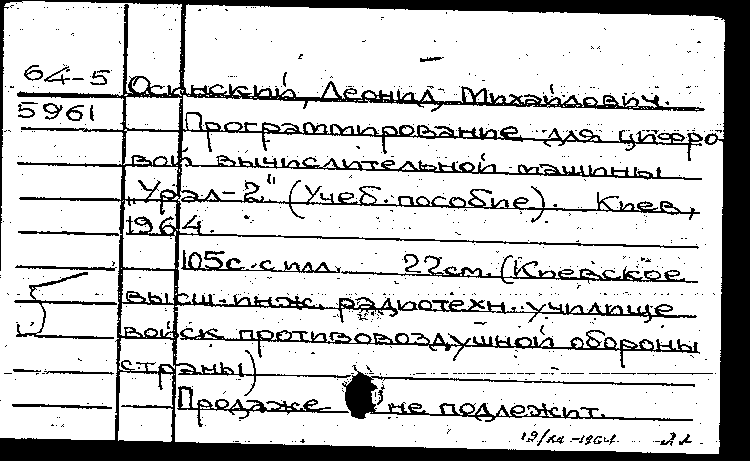 64-5 Осинский, Леонид Михайлович.
5961 Программирование для цифро-
вой вычислительной машины
„Урал-2" (Учеб. пособие). Киев,
1964.
105с. с илл. 22см. (Киевское
высш. инж. радиотехн. училище
войск противовоздушной обороны
страны)
Продаже не подлежит.